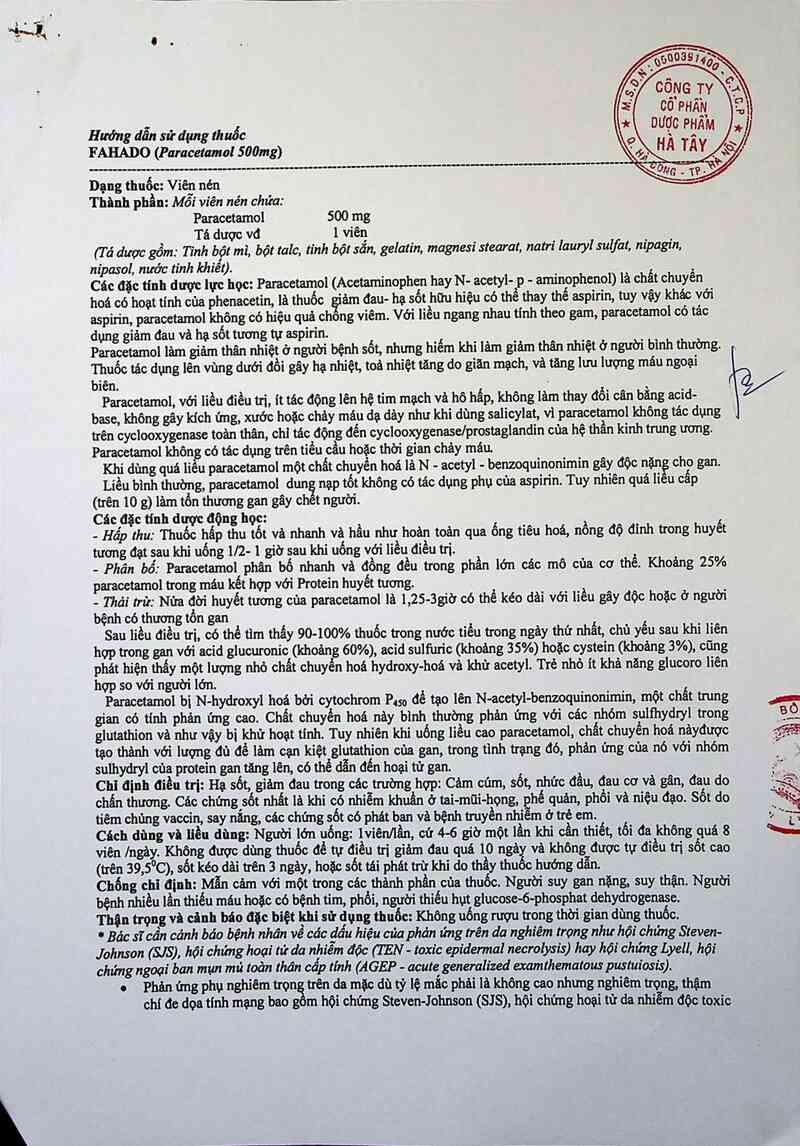 M.S.D.N: 0500391400 - C.T.C.P
CÔNG TY
CỔ PHẦN
DƯỢC PHẨM
HÀ TÂY
Q. HÀ ĐÔNG - TP. HÀ NỘI
Hướng dẫn sử dụng thuốc
FAHADO (Paracetamol 500mg)
Dạng thuốc: Viên nén
Thành phần: Mỗi viên nén chứa:
Paracetamol 500 mg
Tá dược vđ 1 viên
(Tá dược gồm: Tinh bột mì, bột talc, tinh bột sắn, gelatin, magnesi stearat, natri lauryl sulfat, nipagin,
nipasol, nước tinh khiết).
Các đặc tính dược lực học: Paracetamol (Acetaminophen hay N- acetyl- p - aminophenol) là chất chuyển
hoá có hoạt tính của phenacetin, là thuốc giảm đau- hạ sốt hữu hiệu có thể thay thế aspirin, tuy vậy khác với
aspirin, paracetamol không có hiệu quả chống viêm. Với liều ngang nhau tính theo gam, paracetamol có tác
dụng giảm đau và hạ sốt tương tự aspirin.
Paracetamol làm giảm thân nhiệt ở người bệnh sốt, nhưng hiếm khi làm giảm thân nhiệt ở người bình thường.
Thuốc tác dụng lên vùng dưới đồi gây hạ nhiệt, toả nhiệt tăng do giãn mạch, và tăng lưu lượng máu ngoại
biên.
Paracetamol, với liều điều trị, ít tác động lên hệ tim mạch và hô hấp, không làm thay đổi cân bằng acid-
base, không gây kích ứng, xước hoặc chảy máu dạ dày như khi dùng salicylat, vì paracetamol không tác dụng
trên cyclooxygenase toàn thân, chỉ tác động đến cyclooxygenase/prostaglandin của hệ thần kinh trung ương.
Paracetamol không có tác dụng trên tiểu cầu hoặc thời gian chảy máu.
Khi dùng quá liều paracetamol một chất chuyển hoá là N - acetyl - benzoquinonimin gây độc nặng cho gan.
Liều bình thường, paracetamol dung nạp tốt không có tác dụng phụ của aspirin. Tuy nhiên quá liều cấp
(trên 10 g) làm tổn thương gan gây chết người.
Các đặc tính dược động học:
- Hấp thu: Thuốc hấp thu tốt và nhanh và hầu như hoàn toàn qua ống tiêu hoá, nồng độ đỉnh trong huyết
tương đạt sau khi uống 1/2- 1 giờ sau khi uống với liều điều trị.
- Phân bố: Paracetamol phân bố nhanh và đồng đều trong phần lớn các mô của cơ thể. Khoảng 25%
paracetamol trong máu kết hợp với Protein huyết tương.
- Thải trừ: Nửa đời huyết tương của paracetamol là 1,25-3giờ có thể kéo dài với liều gây độc hoặc ở người
bệnh có thương tổn gan
Sau liều điều trị, có thể tìm thấy 90-100% thuốc trong nước tiểu trong ngày thứ nhất, chủ yếu sau khi liên
hợp trong gan với acid glucuronic (khoảng 60%), acid sulfuric (khoảng 35%) hoặc cystein (khoảng 3%), cũng
phát hiện thấy một lượng nhỏ chất chuyển hoá hydroxy-hoá và khử acetyl. Trẻ nhỏ ít khả năng glucoro liên
hợp so với người lớn.
Paracetamol bị N-hydroxyl hoá bởi cytochrom P450 để tạo lên N-acetyl-benzoquinonimin, một chất trung
gian có tính phản ứng cao. Chất chuyển hoá này bình thường phản ứng với các nhóm sulfhydryl trong
glutathion và như vậy bị khử hoạt tính. Tuy nhiên khi uống liều cao paracetamol, chất chuyển hoá nàyđược
tạo thành với lượng đủ để làm cạn kiệt glutathion của gan, trong tình trạng đó, phản ứng của nó với nhóm
sulhydryl của protein gan tăng lên, có thể dẫn đến hoại tử gan.
Chỉ định điều trị: Hạ sốt, giảm đau trong các trường hợp: Cảm cúm, sốt, nhức đầu, đau cơ và gân, đau do
chấn thương. Các chứng sốt nhất là khi có nhiễm khuẩn ở tai-mũi-họng, phế quản, phổi và niệu đạo. Sốt do
tiêm chủng vaccin, say nắng, các chứng sốt có phát ban và bệnh truyền nhiễm ở trẻ em.
Cách dùng và liều dùng: Người lớn uống: 1viên/lần, cứ 4-6 giờ một lần khi cần thiết, tối đa không quá 8
viên /ngày. Không được dùng thuốc để tự điều trị giảm đau quá 10 ngày và không được tự điều trị sốt cao
(trên 39,5⁰C), sốt kéo dài trên 3 ngày, hoặc sốt tái phát trừ khi do thầy thuốc hướng dẫn.
Chống chỉ định: Mẫn cảm với một trong các thành phần của thuốc. Người suy gan nặng, suy thận. Người
bệnh nhiều lần thiếu máu hoặc có bệnh tim, phổi, người thiếu hụt glucose-6-phosphat dehydrogenase.
Thận trọng và cảnh báo đặc biệt khi sử dụng thuốc: Không uống rượu trong thời gian dùng thuốc.
* Bác sĩ cần cảnh báo bệnh nhân về các dấu hiệu của phản ứng trên da nghiêm trọng như hội chứng Steven-
Johnson (SJS), hội chứng hoại tử da nhiễm độc (TEN - toxic epidermal necrolysis) hay hội chứng Lyell, hội
chứng ngoại ban mụn mủ toàn thân cấp tính (AGEP - acute generalized examthematous pustuiosis).
• Phản ứng phụ nghiêm trọng trên da mặc dù tỷ lệ mắc phải là không cao nhưng nghiêm trọng, thậm
chí đe dọa tính mạng bao gồm hội chứng Steven-Johnson (SJS), hội chứng hoại tử da nhiễm độc toxic
BỘ